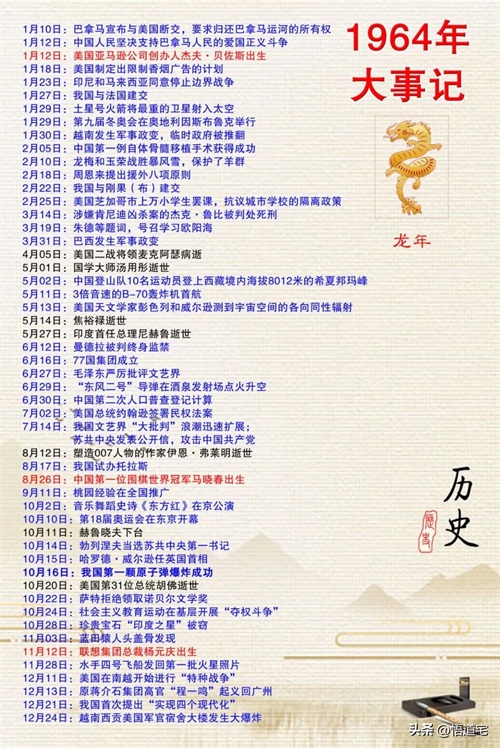 1964年
大事记
龙年
1月10日：巴拿马宣布与美国断交，要求归还巴拿马运河的所有权
1月12日：中国人民坚决支持巴拿马人民的爱国正义斗争
1月12日：美国亚马逊公司创办人杰夫·贝佐斯出生
1月18日：美国制定出限制香烟广告的计划
1月23日：印尼和马来西亚同意停止边界战争
1月27日：我国与法国建交
1月29日：土星号火箭将最重的卫星射入太空
1月29日：第九届冬奥会在奥地利因斯布鲁克举行
1月30日：越南发生军事政变，临时政府被推翻
2月05日：中国第一例自体骨髓移植手术获得成功
2月10日：龙梅和玉荣战胜暴风雪，保护了羊群
2月18日：周恩来提出援外八项原则
2月22日：我国与刚果（布）建交
2月25日：美国芝加哥市上万小学生罢课，抗议城市学校的隔离政策
3月14日：涉嫌肯尼迪凶杀案的杰克·鲁比被判处死刑
3月19日：朱德等题词，号召学习欧阳海
3月31日：巴西发生军事政变
4月05日：美国二战将领麦克阿瑟病逝
5月01日：国学大师汤用彤逝世
5月02日：中国登山队10名运动员登上西藏境内海拔8012米的希夏邦玛峰
5月11日：3倍音速的B-70轰炸机首航
5月13日：美国天文学家彭色列和威尔逊测到宇宙空间的各向同性辐射
5月14日：焦裕禄逝世
5月27日：印度首任总理尼赫鲁逝世
6月12日：曼德拉被判终身监禁
6月16日：77国集团成立
6月27日：毛泽东严厉批评文艺界
6月29日：“东风二号”导弹在酒泉发射场点火升空
6月30日：中国第二次人口普查登记计算
7月02日：美国总统约翰逊签署民权法案
7月14日：我国文艺界“大批判”浪潮迅速扩展；
苏共中央发表公开信，攻击中国共产党
8月12日：塑造007人物的作家伊恩·弗莱明逝世
8月17日：我国试办托拉斯
8月26日：中国第一位围棋世界冠军马晓春出生
9月11日：桃园经验在全国推广
10月2日：音乐舞蹈史诗《东方红》在京公演
10月10日：第18届奥运会在东京开幕
10月11日：赫鲁晓夫下台
10月14日：勃列涅夫当选苏共中央第一书记
10月15日：哈罗德·威尔逊任英国首相
10月16日：我国第一颗原子弹爆炸成功
10月20日：美国第31位总统胡佛逝世
10月22日：萨特拒绝领取诺贝尔文学奖
10月24日：社会主义教育运动在基层开展“夺权斗争”
10月28日：珍贵宝石“印度之星”被窃
11月03日：蓝田猿人头盖骨发现
11月12日：联想集团总裁杨元庆出生
11月28日：水手四号飞船发回第一批火星照片
12月11日：美国在南越开始进行“特种战争”
12月13日：原蒋介石集团高官“程一鸣”起义回广州
12月21日：我国首次提出“实现四个现代化”
12月24日：越南西贡美国军官宿舍大楼发生大爆炸
历史
头条 @悟道宅